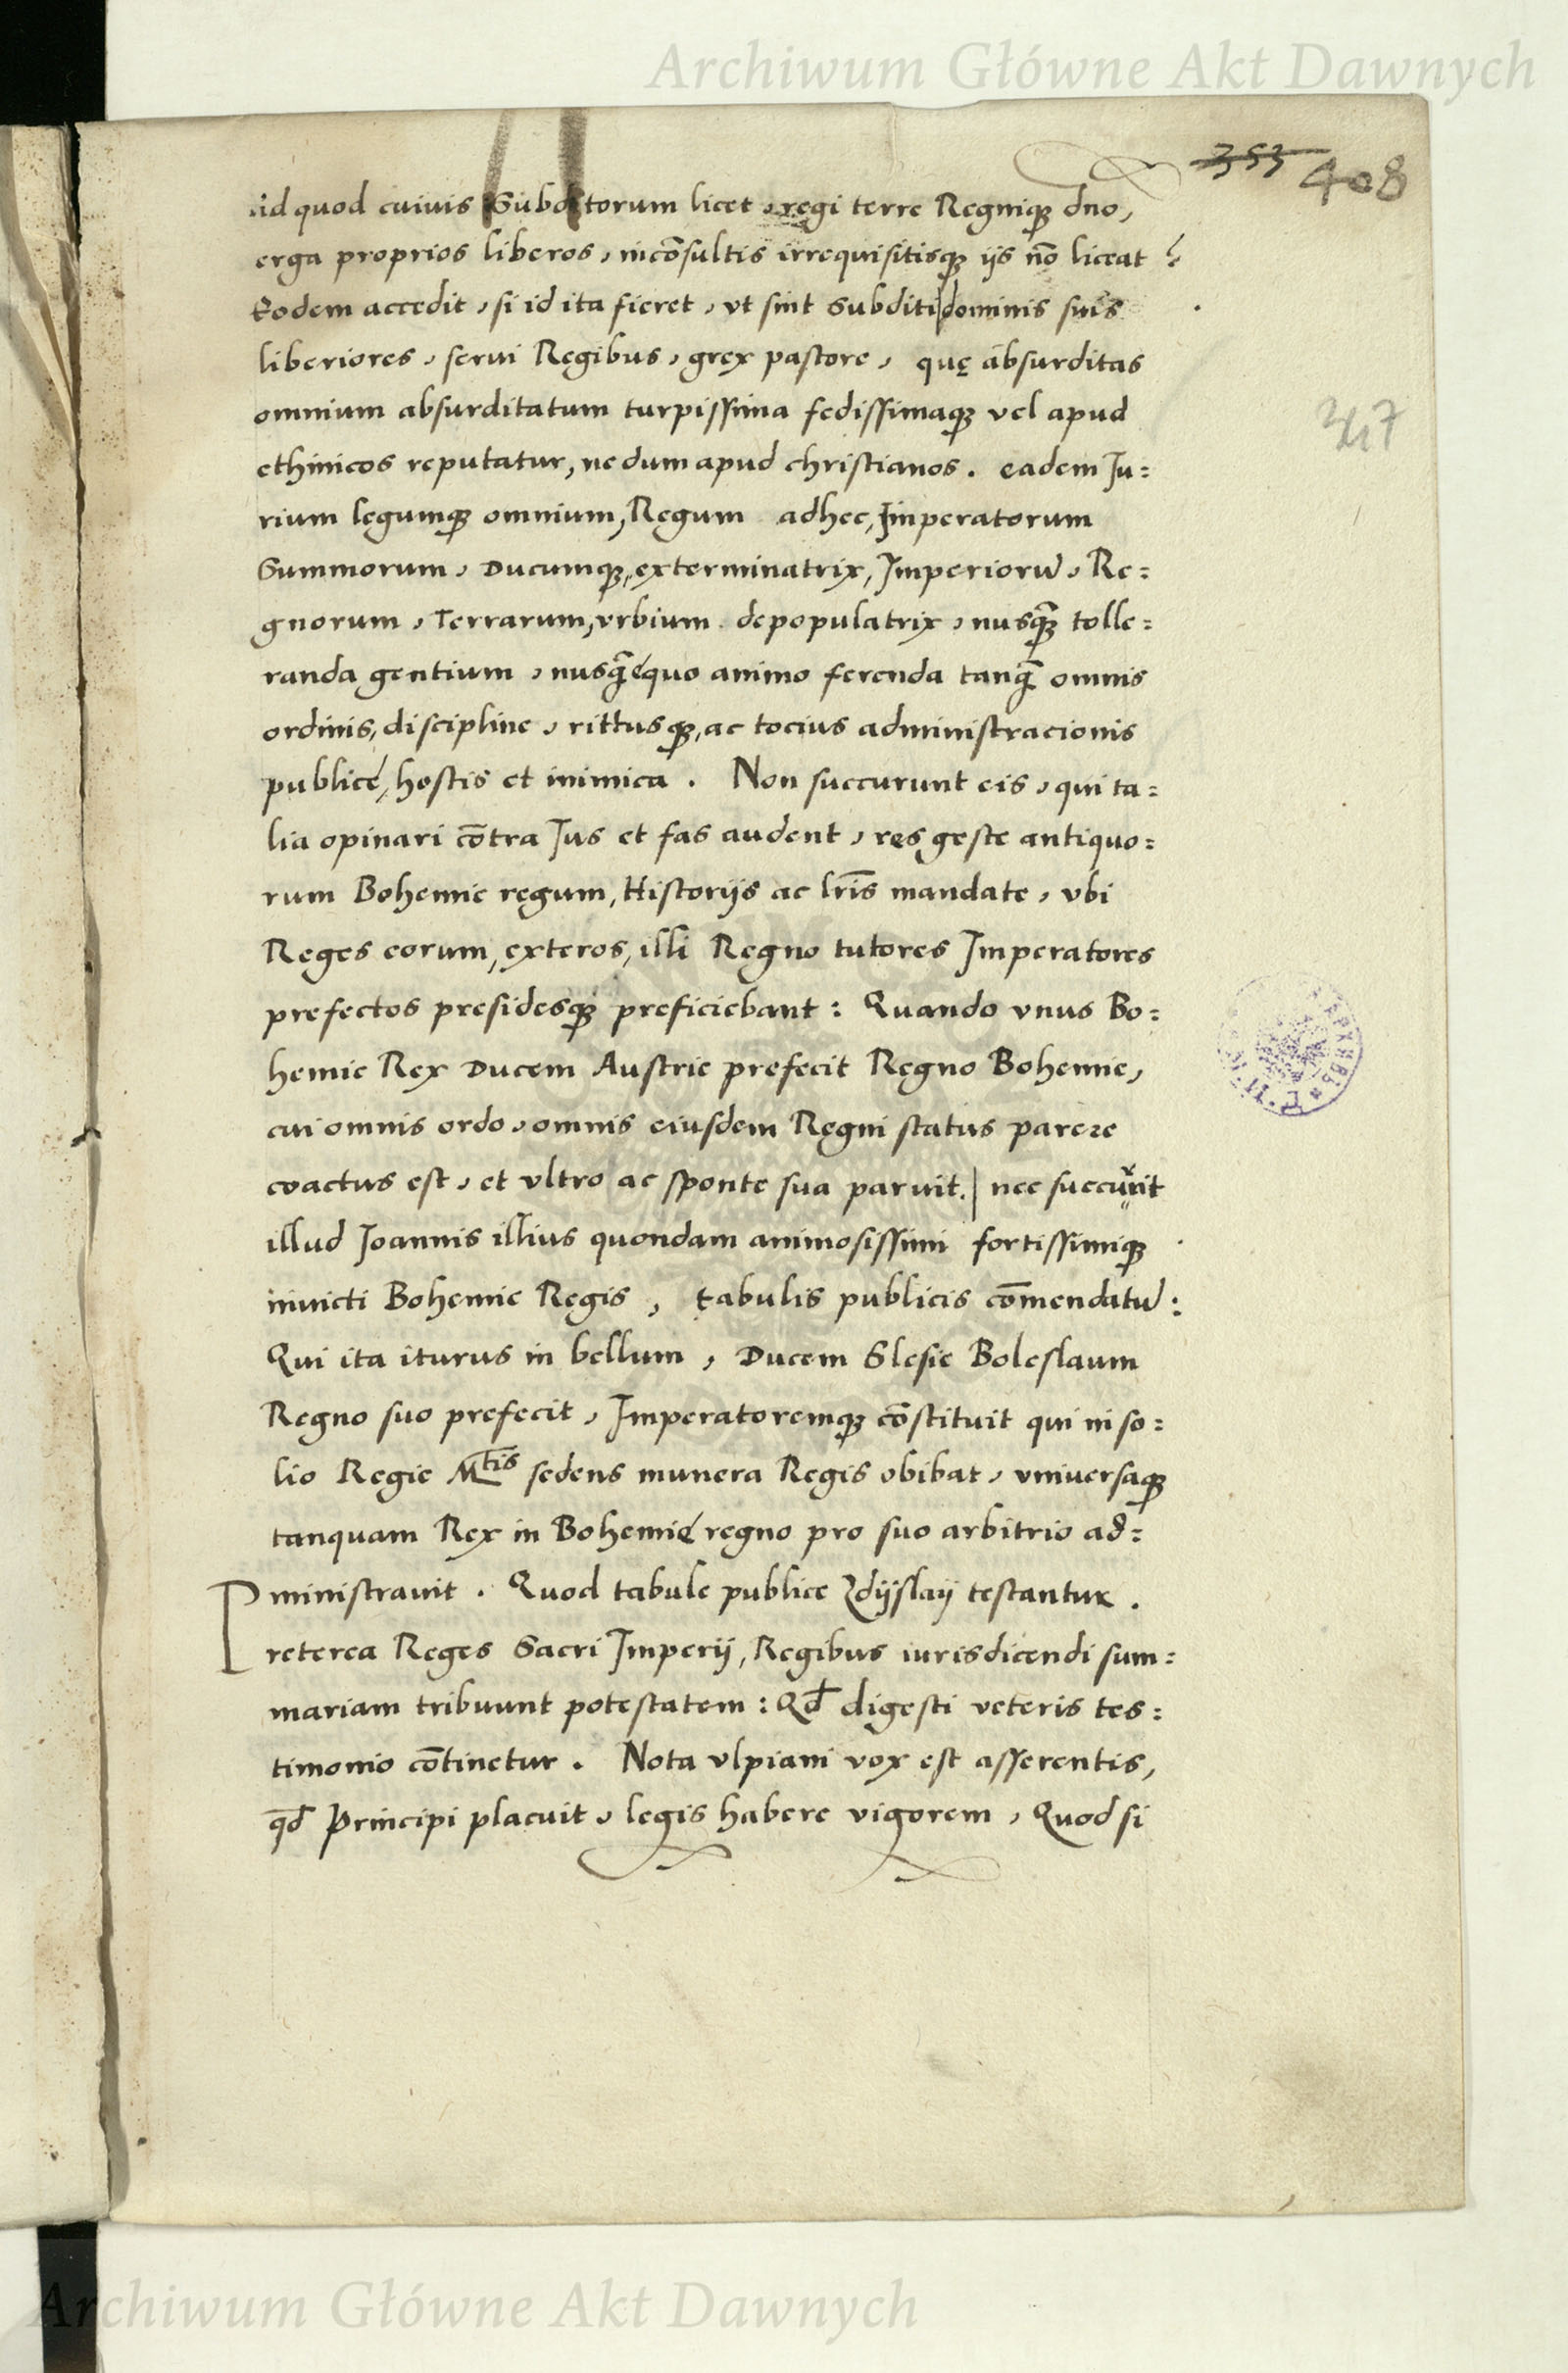 Archiwum Główne Akt Dawnych
353 408
id quod cuiuis Subditorum licet, regi terre Regniqꝫ dn̄o,
erga proprios liberos, incōsultis irrequisitisqꝫ ijs nō liceat?
Eodem accedit, si id ita fieret, vt sint Subditi dominis suis
317
liberiores, serui Regibus, grex pastore, quę absurditas
omnium absurditatum turpissima fedissimaqꝫ vel apud
ethinicos reputatur, nedum apud christianos. eadem Ju:
rium legumqꝫ omnium, Regum adhec, Imperatorum
Summorum, Ducumqꝫ, exterminatrix, Imperiorū, Re:
gnorum, Terrarum, vrbium depopulatrix, nusqꝫ̄ tolle:
randa gentium, nusq̄ equo animo ferenda tanq̄ omnis
ordinis, discipline, rittusqꝫ, ac tocius administracionis
publice, hostis et inimica. Non succurunt eis, qui ta:
lia opinari cōtra Jus et fas audent, res geste antiquo:
rum Bohemie regum, Historijs ac lr̄is mandate, vbi
Reges eorum, exteros, illi Regno tutores Imperatores
prefectos presidesqꝫ preficiebant: Quando vnus Bo:
hemie Rex Ducem Austrie prefecit Regno Bohemie,
cui omnis ordo, omnis eiusdem Regni status parere
coactus est, et vltro ac sponte sua paruit. | nec succurrit
illud Joannis illius quondam animosissimi fortissimiqꝫ
inuicti Bohemie Regis, tabulis publicis cōmendatū:
Qui ita iturus in bellum, Ducem Slesie Boleslaum
Regno suo prefecit, Imperatoremqꝫ cōstituit qui in so:
lio Regie Mtis sedens munera Regis obibat, vniuersaqꝫ
tanquam Rex in Bohemie regno pro suo arbitrio ad:
ministrauit. Quod tabule publice Zdijslaij testantur.
Preterea Reges Sacri Imperij, Regibus iurisdicendi sum:
mariam tribuunt potestatem: Qd̄ digesti veteris tes:
timonio cōtinetur. Nota vlpiani vox est asserentis,
qd̄ Principi placuit, legis habere vigorem, Quod si
Archiwum Główne Akt Dawnych